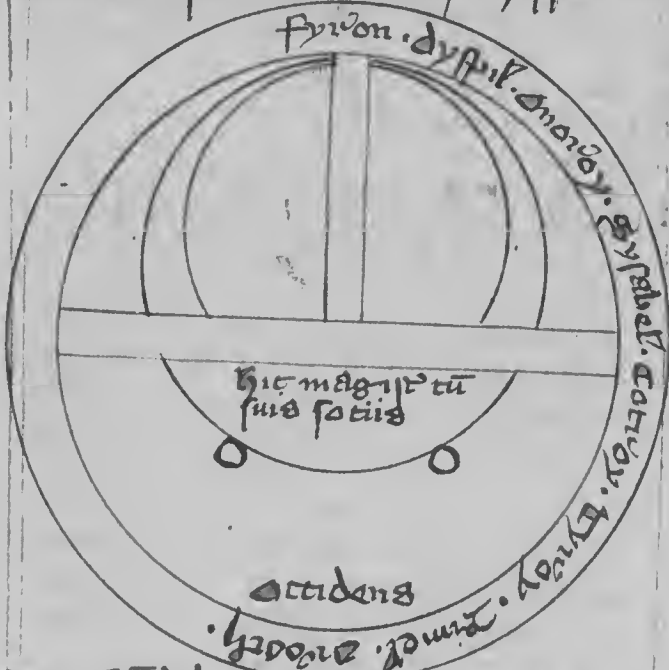 fyron . dyspil . onoroy . sysabel . cotroy . tyroy . rimel . orooth .
hic magist' cū
suis sociis
occidens